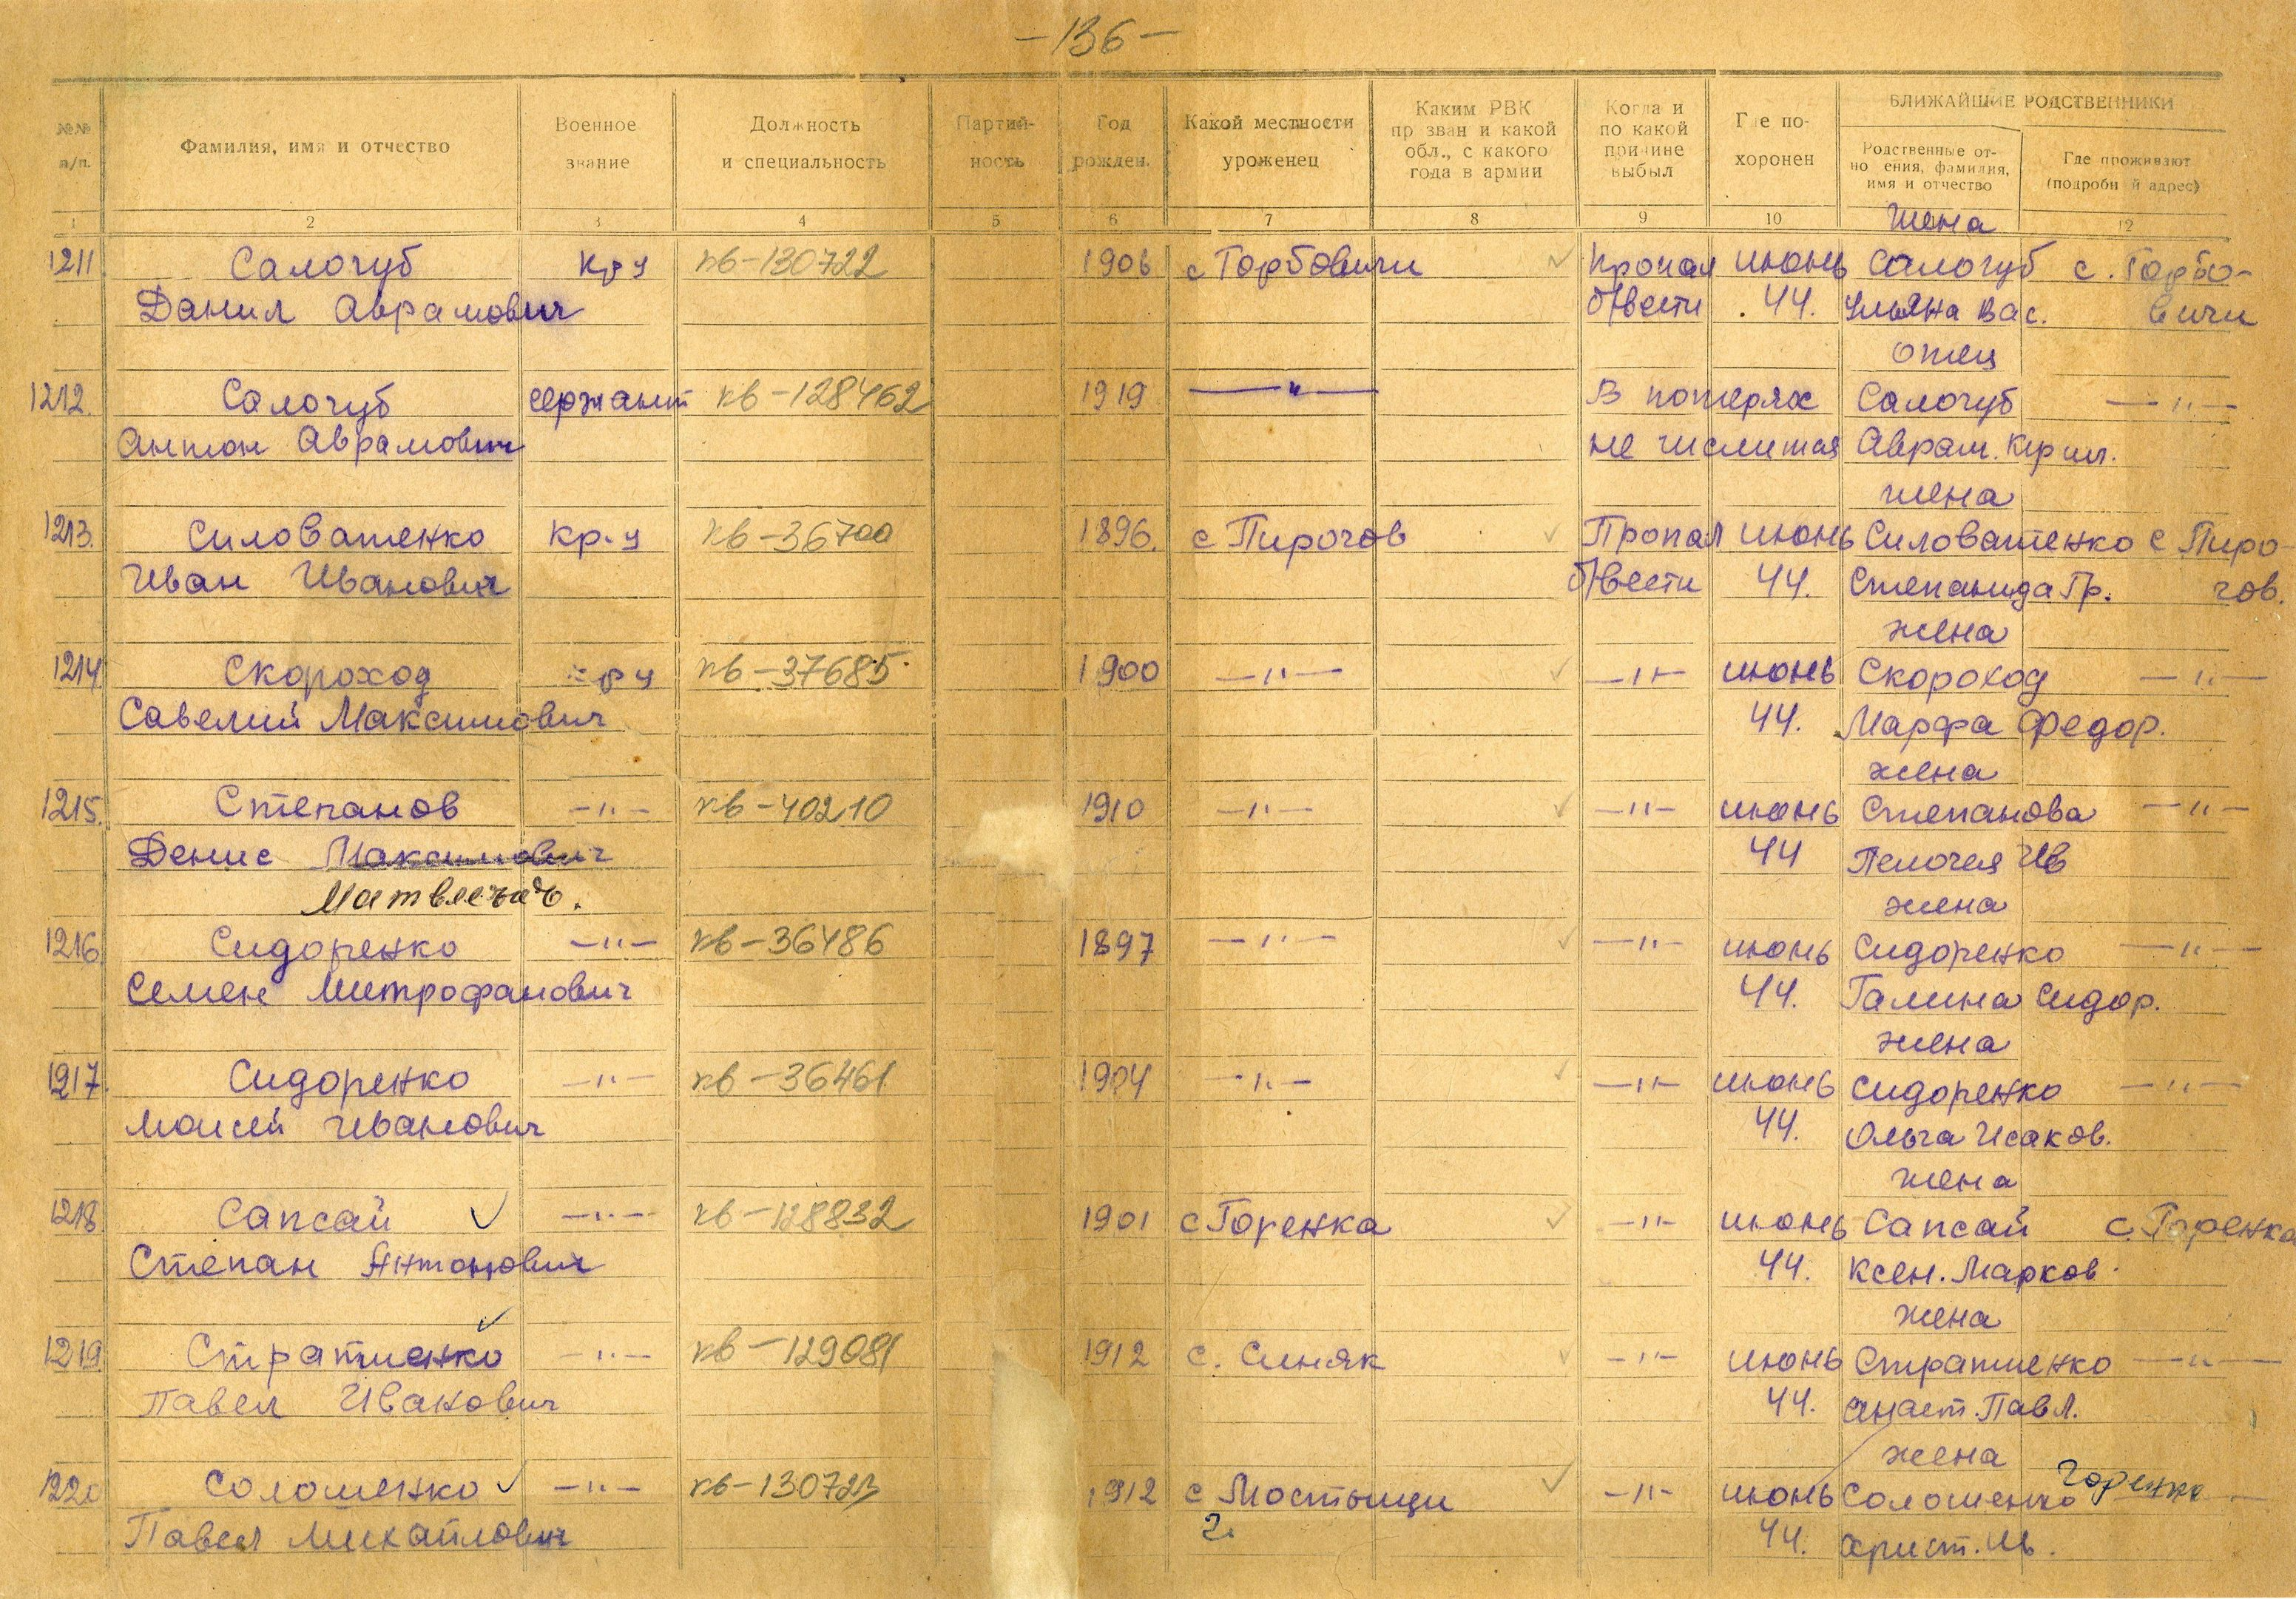 -136-
БЛИЖАЙШИЕ РОДСТВЕННИКИ
№№ п/п. Фамилия, имя и отчество Военное звание Должность и специальность Партий-ность Год рожден. Какой местности уроженец Каким РВК пр зван и какой обл., с какого года в армии Когда и по какой причине выбыл Где по-хоронен Родственные от-но ения, фамилия, имя и отчество Где проживают (подробн й адрес)
1 2 3 4 5 6 7 8 9 10 12
жена
1211 Салогуб кр-ц кв-130722 1906 с Горбовичи Пропал июнь Салогуб с. Горбо-
Данил Аврамович б/вести 44. Ульяна Вас. вичи
отец
1212. Салогуб сержант кв-128462 1919 —"— В потерях Салогуб —"—
Антон Аврамович не числится Аврам. Кирил.
жена
1213. Силоватенко кр-ц кв-36700 1896. с Пирогов Пропал июнь Силоватенко с Пиро-
Иван Иванович б/вести 44. Степанида Гр. гов.
жена
1214. Скороход кр-ц кв-37685 1900 —"— —"— июнь Скороход —"—
Савелий Максимович 44. Марфа Федор.
жена
1215. Степанов —"— кв-40210 1910 —"— —"— июнь Степанова —"—
Денис Максимович 44 Пелогея Ив
Матвеевич. жена
1216. Сидоренко —"— кв-36486 1897 —"— —"— июнь Сидоренко —"—
Семен Митрофанович 44. Галина Сидор.
жена
1217. Сидоренко —"— кв-36461 1904 —"— —"— июнь Сидоренко —"—
Моисей Иванович 44. Ольга Исаков.
жена
1218. Сапсай —"— кв-128832 1901 с Горенка —"— июнь Сапсай с. Горенка
Степан Антонович 44. Ксен. Марков.
жена
1219. Стратиенко —"— кв-129081 1912 с. Синяк —"— июнь Стратиенко —"—
Павел Иванович 44. Анаст. Павл.
жена
1220 Соломенко —"— кв-130723 1912 с Мостыщи —"— июнь Соломенко Горенка
Павел Михайлович 44. Христ. Ив.